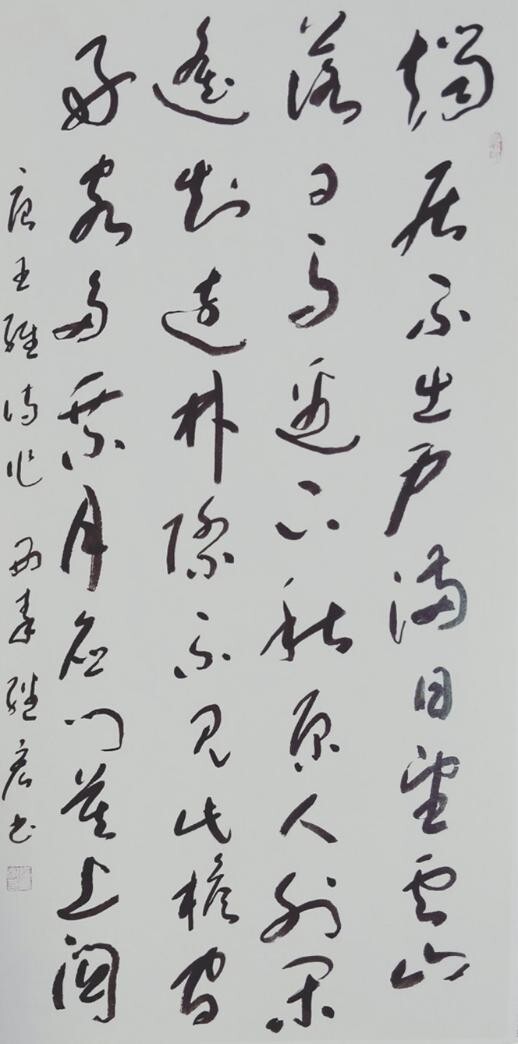 端居不出戶滿目望雲山
落日鳥邊下秋原人外閑
遙知遠林際不見此檐間
好客多乘月應門莫上關
唐王維詩作 書